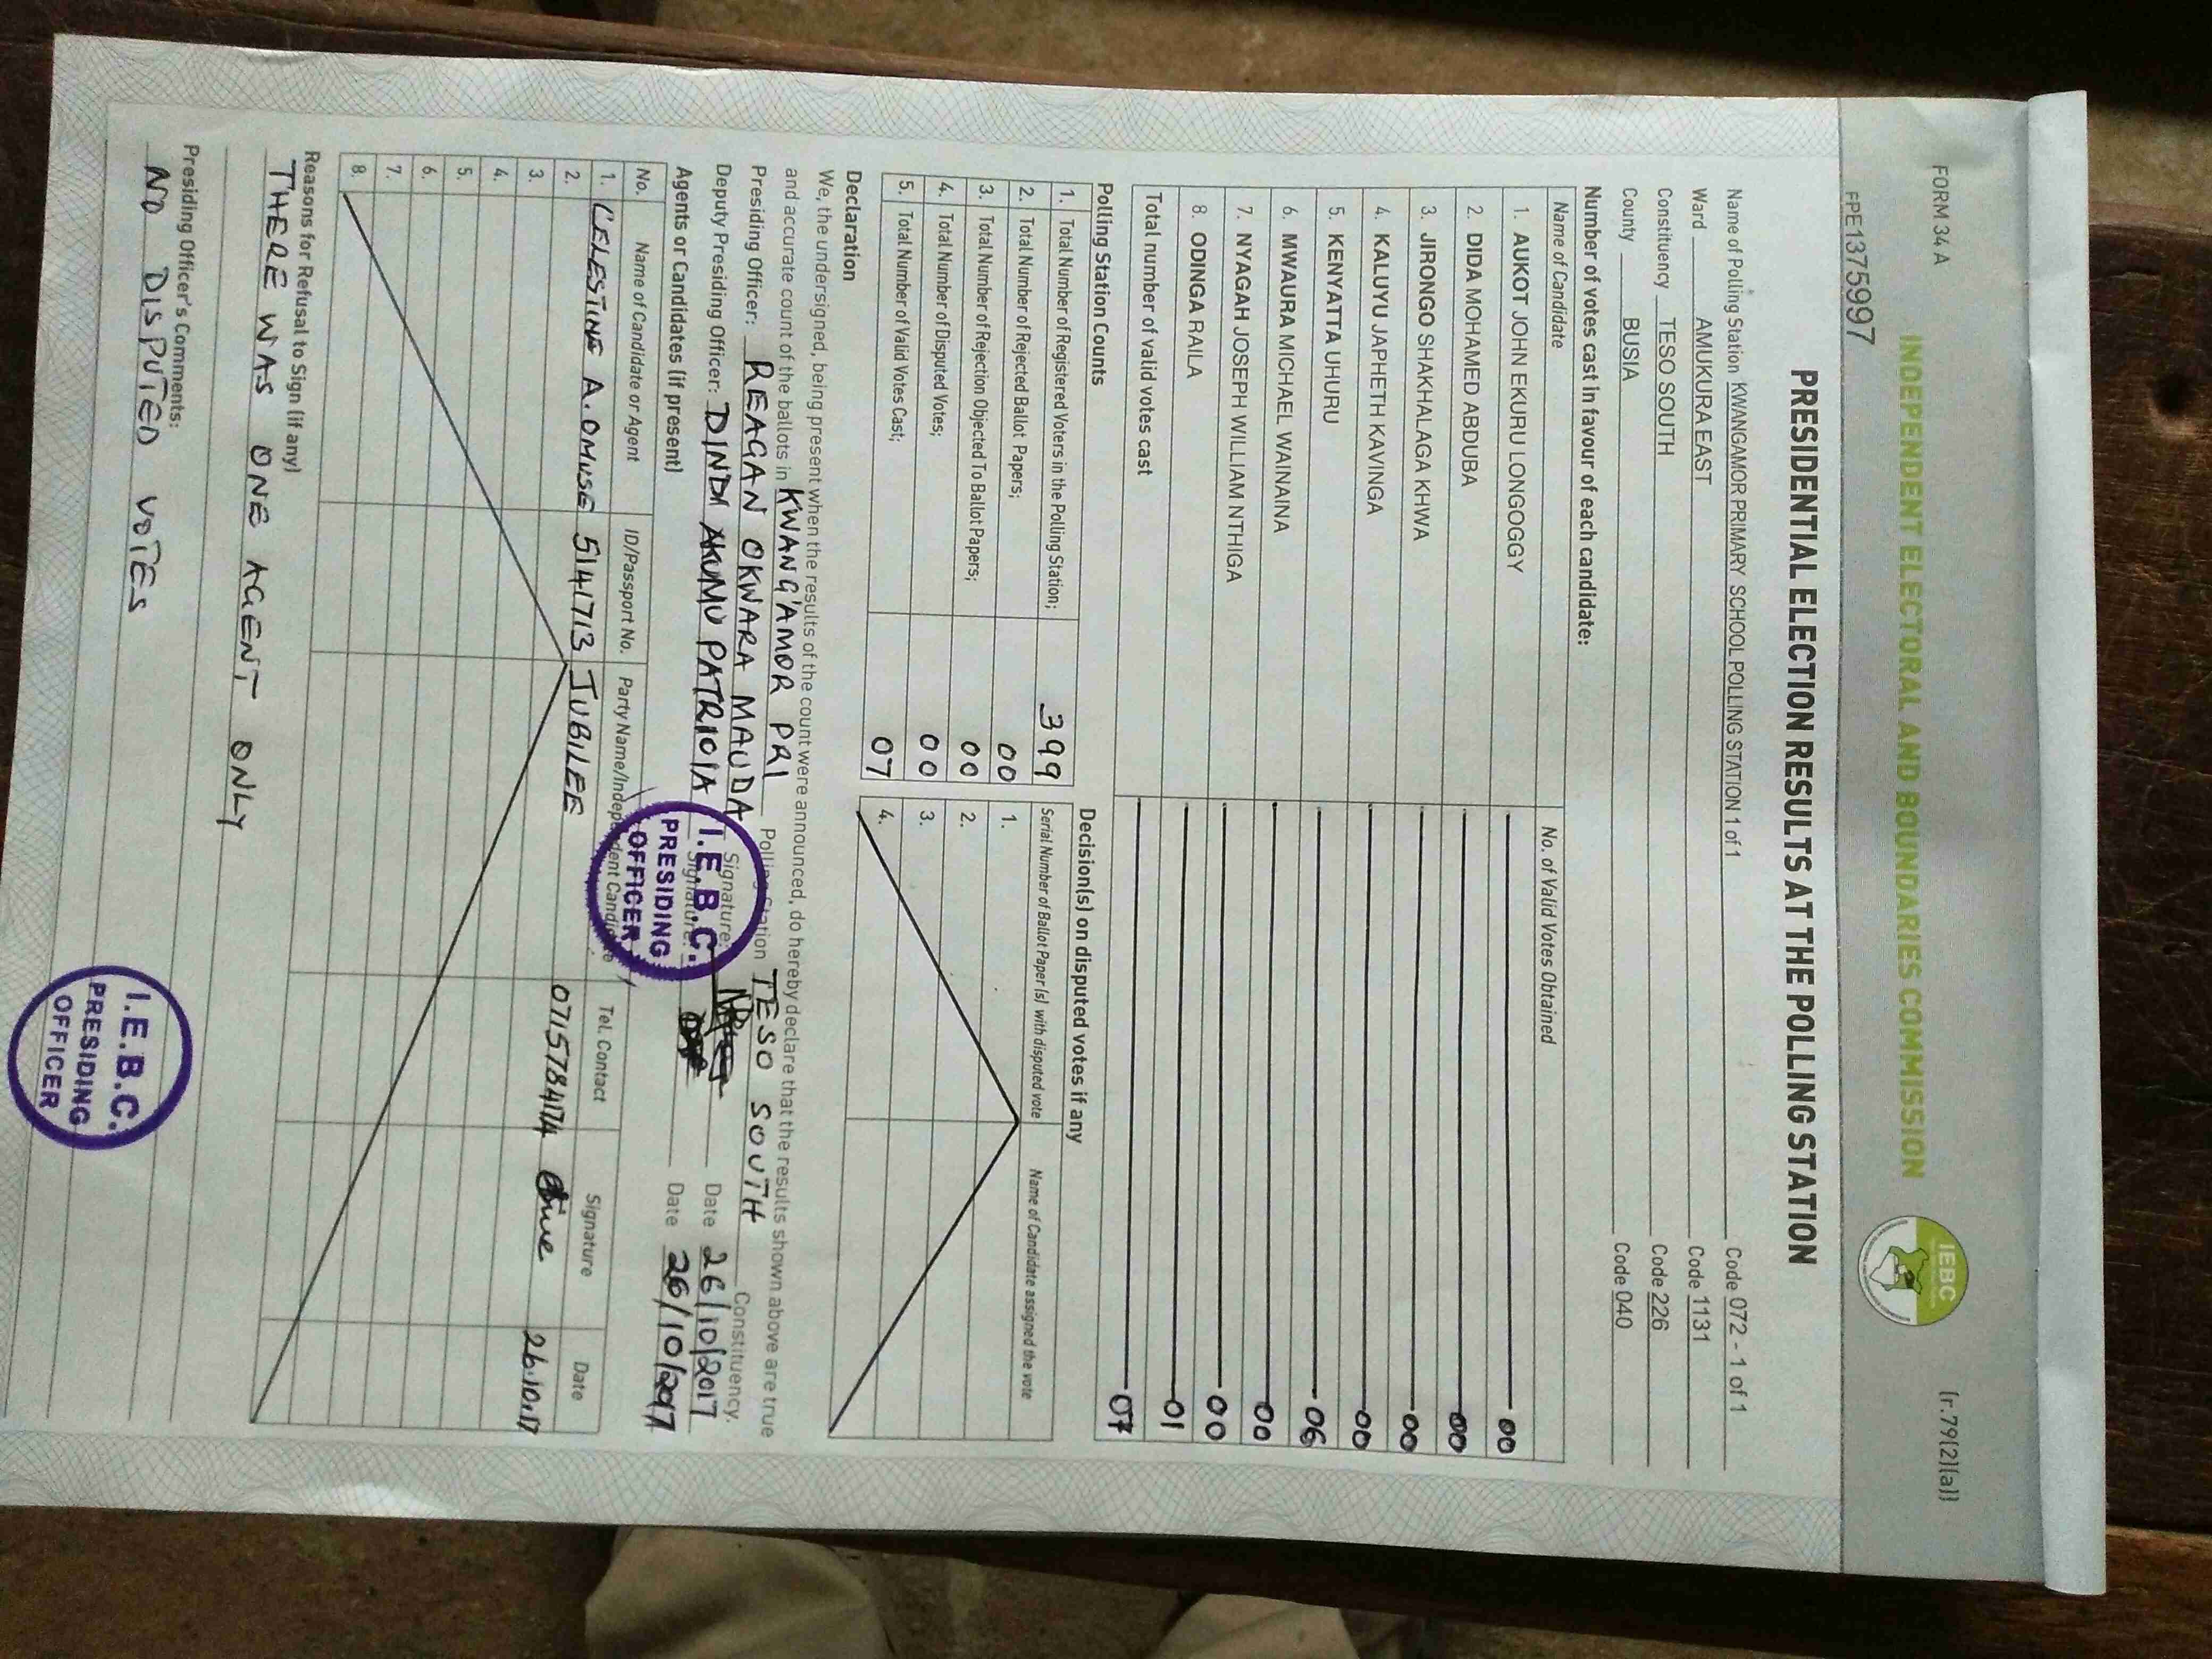 FORM 34 A
(r.79(2)(a))
INDEPENDENT ELECTORAL AND BOUNDARIES COMMISSION
IEBC
PRE1375997
PRESIDENTIAL ELECTION RESULTS AT THE POLLING STATION
Name of Polling Station KWANGAMOR PRIMARY SCHOOL POLLING STATION 1 of 1 Code 072 - 1 of 1
Ward AMUKURA EAST Code 1131
Constituency TESO SOUTH Code 226
County BUSIA Code 040
Number of votes cast in favour of each candidate:
Name of Candidate No. of Valid Votes Obtained
1. AUKOT JOHN EKURU LONGOGGY 00
2. DIDA MOHAMED ABDUBA 00
3. JIRONGO SHAKHALAGA KHWA 00
4. KALUYU JAPHETH KAVINGA 00
5. KENYATTA UHURU 06
6. MWAURA MICHAEL WAINAINA 00
7. NYAGAH JOSEPH WILLIAM NTHIGA 00
8. ODINGA RAILA 01
Total number of valid votes cast 07
Polling Station Counts
1. Total Number of Registered Voters in the Polling Station; 399
2. Total Number of Rejected Ballot Papers; 00
3. Total Number of Rejection Objected To Ballot Papers; 00
4. Total Number of Disputed Votes; 00
5. Total Number of Valid Votes Cast; 07
Decision(s) on disputed votes if any
Serial Number of Ballot Paper (s) with disputed vote Name of Candidate assigned the vote
1.
2.
3.
4.
Declaration
We, the undersigned, being present when the results of the count were announced, do hereby declare that the results shown above are true
and accurate count of the ballots in KWANG'AMOR PRI Polling Station TESO SOUTH Constituency.
Presiding Officer: REAGAN OKWARA MAUDA Signature: Date 26/10/2017
Deputy Presiding Officer: DINDI AKUMU PATRICIA Signature: Date 26/10/2017
I.E.B.C.
PRESIDING
OFFICER
Agents or Candidates (if present)
No. Name of Candidate or Agent ID/Passport No. Party Name/Independent Candidate Tel. Contact Signature Date
1. CELESTINE A. OMUSE 5141713 JUBILEE 0715784174 26.10.17
2.
3.
4.
5.
6.
7.
8.
Reasons for Refusal to Sign (if any)
THERE WAS ONE AGENT ONLY
Presiding Officer's Comments:
NO DISPUTED VOTES
I.E.B.C.
PRESIDING
OFFICER